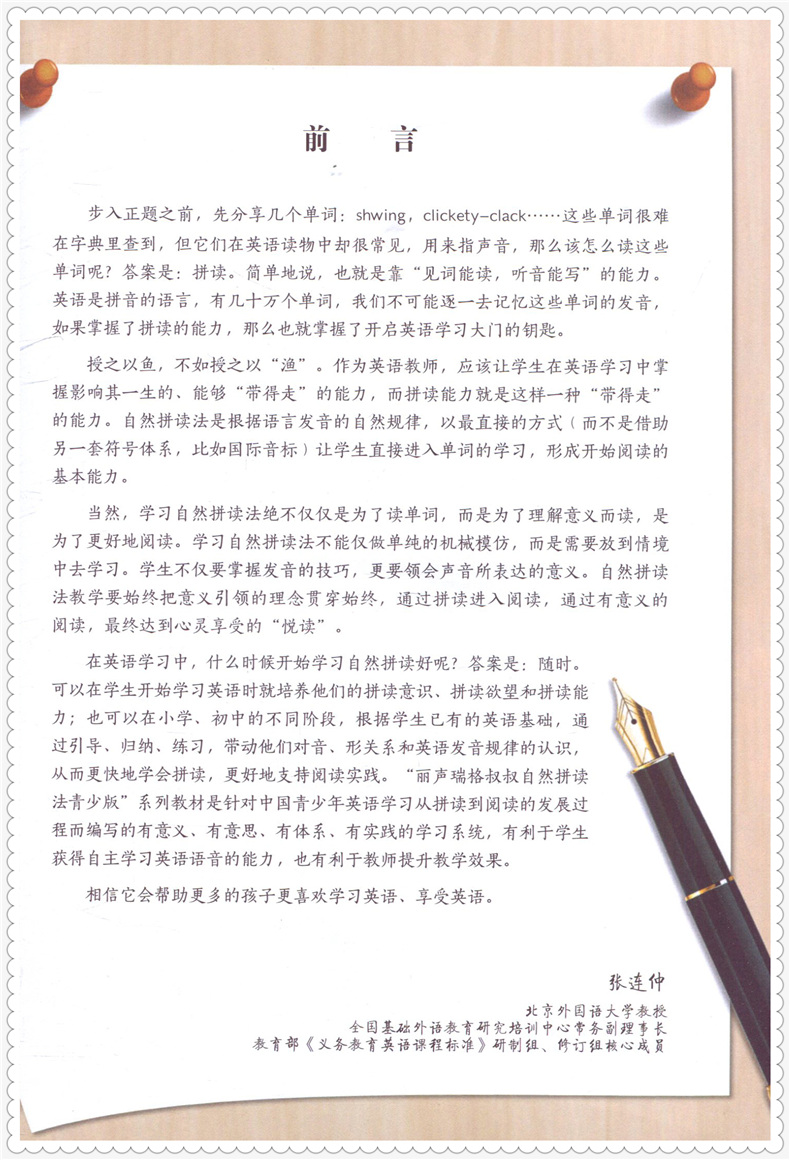 前言
步入正题之前，先分享几个单词：shwing，clickety-clack……这些单词很难
在字典里查到，但它们在英语读物中却很常见，用来指声音，那么该怎么读这些
单词呢？答案是：拼读。简单地说，也就是靠“见词能读，听音能写”的能力。
英语是拼音的语言，有几十万个单词，我们不可能逐一去记忆这些单词的发音，
如果掌握了拼读的能力，那么也就掌握了开启英语学习大门的钥匙。
授之以鱼，不如授之以“渔”。作为英语教师，应该让学生在英语学习中掌
握影响其一生的、能够“带得走”的能力，而拼读能力就是这样一种“带得走”
的能力。自然拼读法是根据语言发音的自然规律，以最直接的方式（而不是借助
另一套符号体系，比如国际音标）让学生直接进入单词的学习，形成开始阅读的
基本能力。
当然，学习自然拼读法绝不仅仅是为了读单词，而是为了理解意义而读，是
为了更好地阅读。学习自然拼读法不能仅做单纯的机械模仿，而是需要放到情境
中去学习。学生不仅要掌握发音的技巧，更要领会声音所表达的意义。自然拼读
法教学要始终把意义引领的理念贯穿始终，通过拼读进入阅读，通过有意义的
阅读，最终达到心灵享受的“悦读”。
在英语学习中，什么时候开始学习自然拼读好呢？答案是：随时。
可以在学生开始学习英语时就培养他们的拼读意识、拼读欲望和拼读能
力；也可以在小学、初中的不同阶段，根据学生已有的英语基础，通
过引导、归纳、练习，带动他们对音、形关系和英语发音规律的认识，
从而更快地学会拼读，更好地支持阅读实践。“丽声瑞格叔叔自然拼读
法青少版”系列教材是针对中国青少年英语学习从拼读到阅读的发展过
程而编写的有意义、有意思、有体系、有实践的学习系统，有利于学生
获得自主学习英语语音的能力，也有利于教师提升教学效果。
相信它会帮助更多的孩子更喜欢学习英语、享受英语。
张连仲
北京外国语大学教授
全国基础外语教育研究培训中心常务副理事长
教育部《义务教育英语课程标准》研制组、修订组核心成员